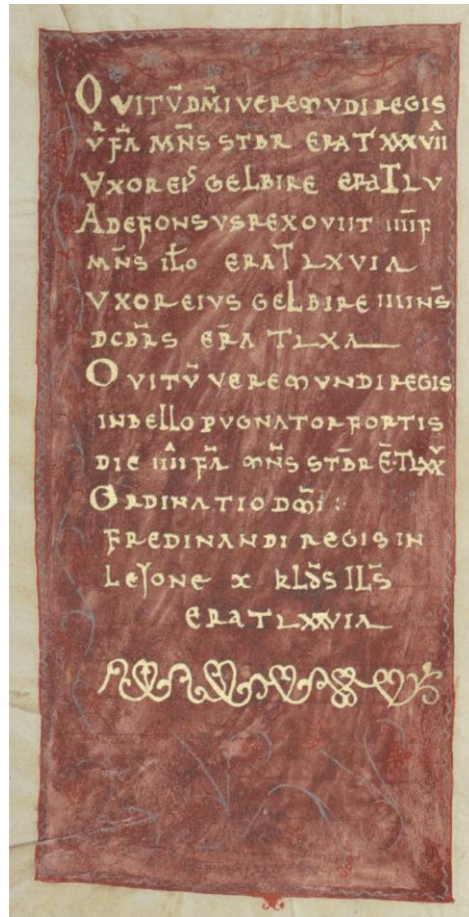 OVITŪ DM̄I VEREMUDI REGIS
V̄ FR̄A MN̄S STB̄R ERA T XXXVII
VXOR EIꝰ GELBIRE ERA T L V
ADEFONSVS REX OVIIT IIII F
MN̄S IŁO ERA T L X VIA
VXOR EIVS GELBIRE IIII N̄S
DCB̄RS ER̄A T L X A
OVITŪ VEREMVNDI REGIS
IN BELLO PVGNATOR FORTIS
DIE IIII FR̄A MN̄S STB̄R Ē T LXX̆
ORDINATIO DM̄I :
FREDINANDI REGIS IN
LEJONE X KLD̄S IL̄S
ERA T L XX VIA